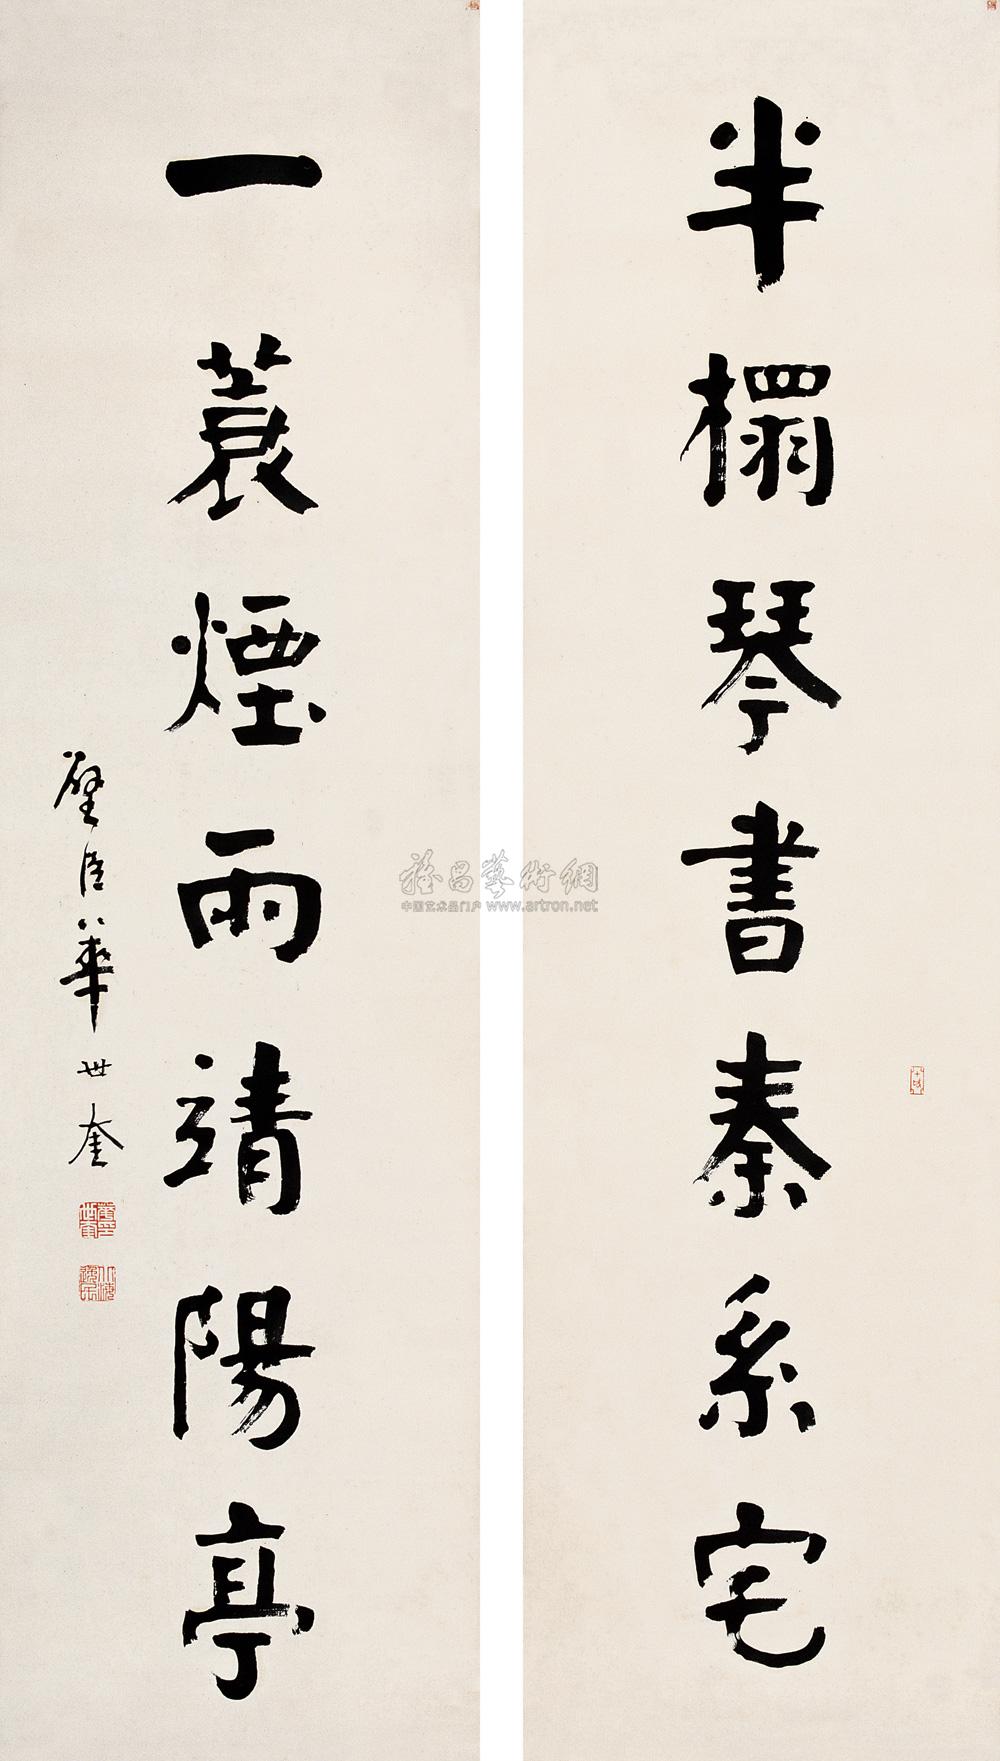 半榻琴書秦系宅
一蓑煙雨靖陽亭
璧臣華世奎
雅昌藝術網
中国艺术品门户 www.artron.net